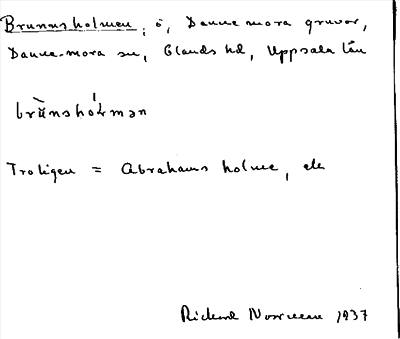 Brunnsholmen, ö, Dannemora gruvor,
Dannemora sn, Olands hd, Uppsala län
brùnshól̵mən
Troligen = Abrahams holme, ek
Richard Norrman 1937